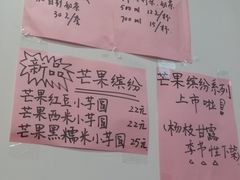 30元/套
500ml 12元/杯
700ml 15/杯
新品 芒果缤纷
芒果红豆小芋圆 22元
芒果西米小芋圆 22元
芒果黑糯米小芋圆 25元
芒果缤纷系列
上市啦!
杨枝甘露
季节性下架